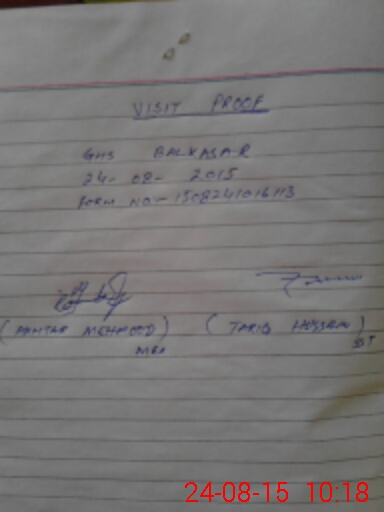 VISIT PROOF
GHS BALKASAR
24-08-2015
FORM NO-1508241016113
(AKHTAR MEHMOOD) (TARIQ HUSSAIN)
MEA SST
24-08-15 10:18